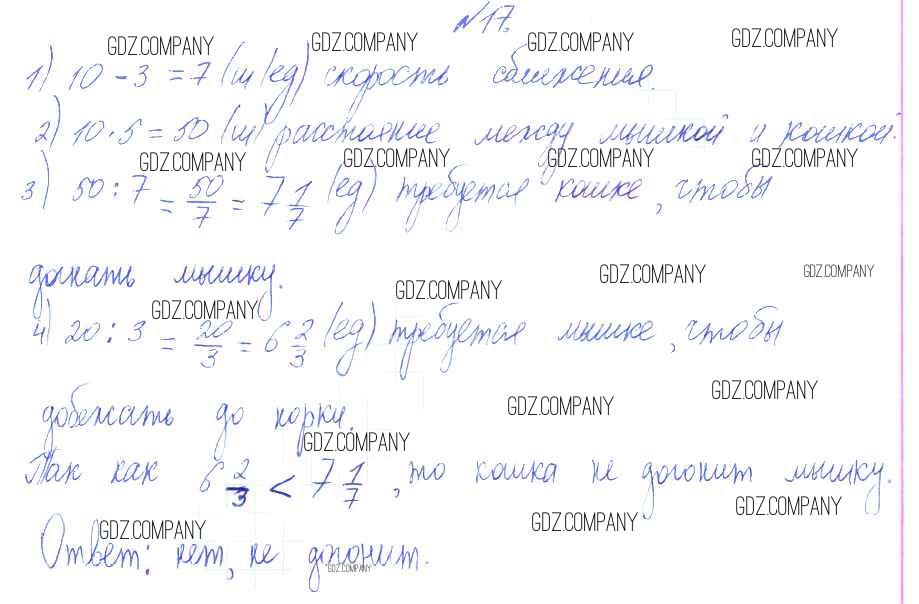 №17.
GDZ.COMPANY GDZ.COMPANY GDZ.COMPANY GDZ.COMPANY
1) 10 - 3 = 7 (ш/ед) скорость сближения.
2) 10 · 5 = 50 (ш) расстояние между мышкой и кошкой.
GDZ.COMPANY GDZ.COMPANY GDZ.COMPANY GDZ.COMPANY
3) 50 : 7 = 50/7 = 7 1/7 (ед) требуется кошке, чтобы
догнать мышку.
GDZ.COMPANY GDZ.COMPANY GDZ.COMPANY GDZ.COMPANY
4) 20 : 3 = 20/3 = 6 2/3 (ед) требуется мышке, чтобы
добежать до норки.
GDZ.COMPANY GDZ.COMPANY GDZ.COMPANY
Так как 6 2/3 < 7 1/7, то кошка не догонит мышку.
GDZ.COMPANY GDZ.COMPANY GDZ.COMPANY
Ответ: нет, не догонит.
GDZ.COMPANY